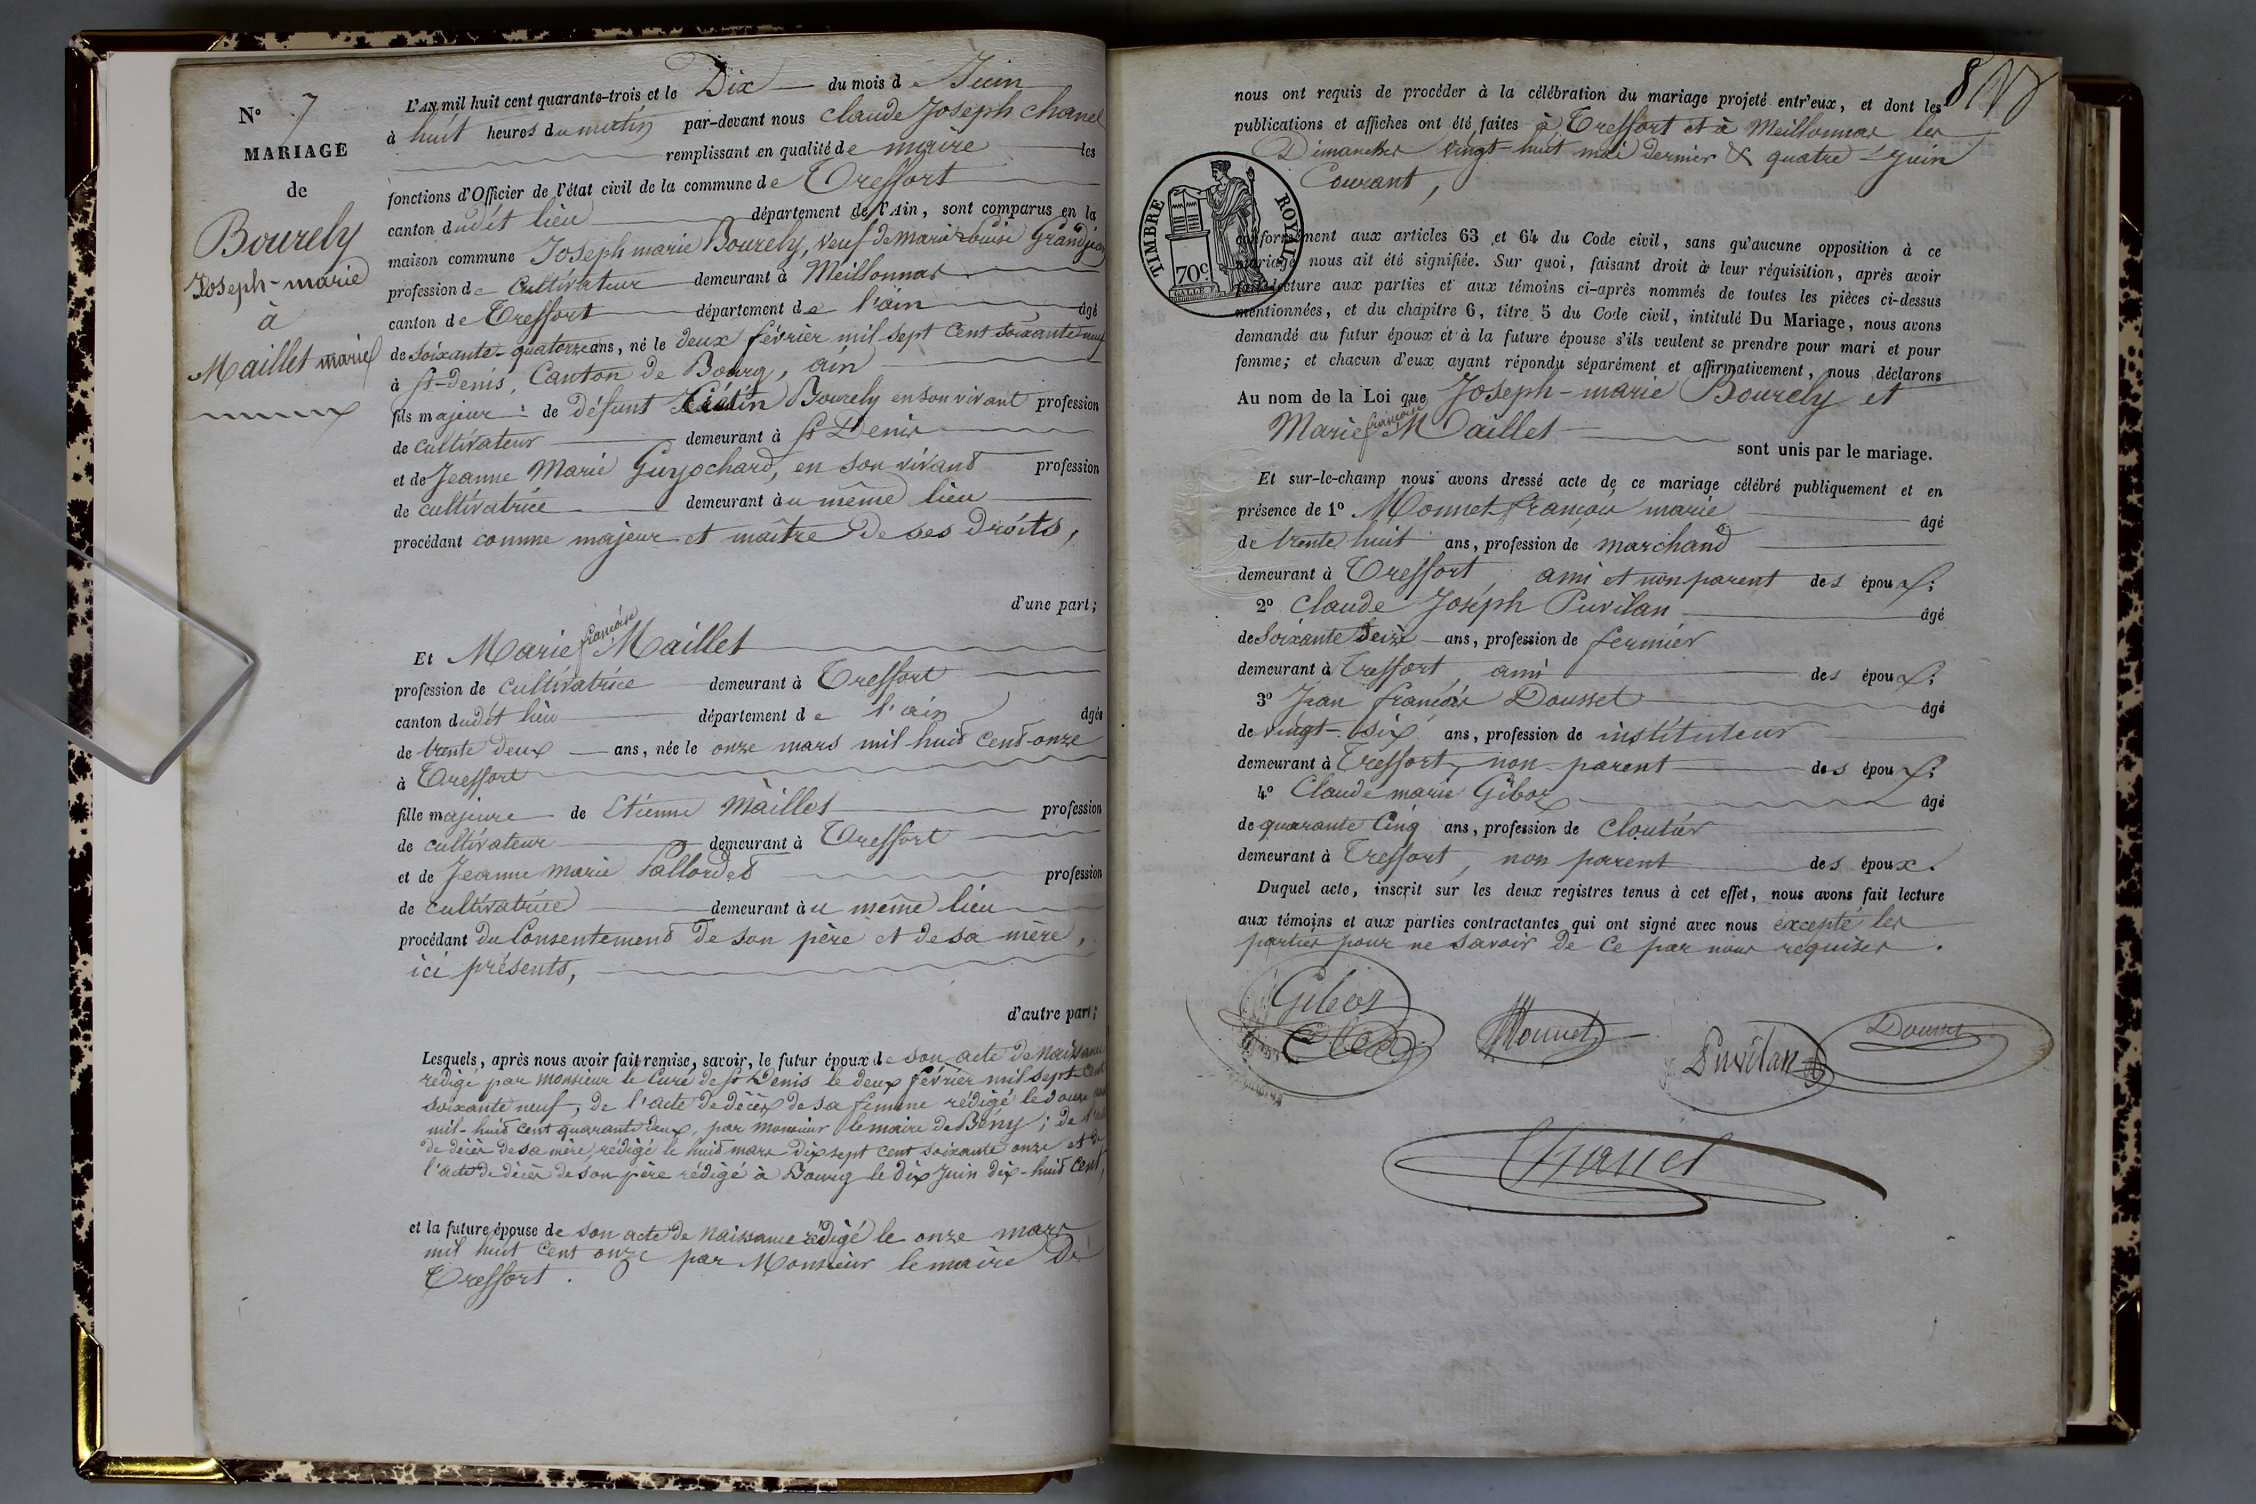 N° 7
MARIAGE
de
Bourely
Joseph-marie
à
Maillet marie
L'AN mil huit cent quarante-trois et le Dix du mois de Juin
à huit heures du matin par-devant nous Claude Joseph Chanel
remplissant en qualité de maire les
fonctions d'Officier de l'état civil de la commune de Treffort
canton dudit lieu département de l'Ain, sont comparus en la
maison commune Joseph marie Bourely, veuf de marie Louise Grandjean
profession de Cultivateur demeurant à Meillonnas
canton de Treffort département de l'ain âgé
de soixante-quatorze ans, né le deux février mil sept cent soixante neuf
à St-denis, Canton de Bourg, ain
fils majeur de défunt Bourely en son vivant profession
de cultivateur demeurant à St Denis
et de Jeanne Marie Guyochard, en son vivant profession
de cultivatrice demeurant au même lieu
procédant comme majeur et maître de ses droits,
d'une part;
Et Marie françoise Maillet
profession de cultivatrice demeurant à Treffort
canton dudit lieu département de l'ain âgée
de trente deux ans, née le onze mars mil huit cent onze
à Treffort
fille majeure de Etienne Maillet profession
de cultivateur demeurant à Treffort
et de Jeanne marie Pallordet profession
de cultivatrice demeurant au même lieu
procédant du Consentement de son père et de sa mère,
ici présents,
d'autre part;
Lesquels, après nous avoir fait remise, savoir, le futur époux de son acte de naissance
rédigé par monsieur le Curé de St Denis le deux février mil sept cent
soixante neuf, de l'acte de décès de sa femme rédigé le douze
mil-huit cent quarante deux, par monsieur le maire de Bény; de l'acte
de décès de sa mère, rédigé le huit mars dix sept cent soixante onze et de
l'acte de décès de son père rédigé à Bourg le dix Juin dix-huit cent,
et la future épouse de son acte de naissance rédigé le onze mars
mil huit cent onze par Monsieur le maire de
Treffort.
nous ont requis de procéder à la célébration du mariage projeté entr'eux, et dont les
publications et affiches ont été faites à Treffort et à Meillonnas les
Dimanches vingt-huit mai dernier & quatre Juin
Courant,
TIMBRE ROYAL
70c
conformément aux articles 63 et 64 du Code civil, sans qu'aucune opposition à ce
mariage nous ait été signifiée. Sur quoi, faisant droit à leur réquisition, après avoir
fait lecture aux parties et aux témoins ci-après nommés de toutes les pièces ci-dessus
mentionnées, et du chapitre 6, titre 5 du Code civil, intitulé Du Mariage, nous avons
demandé au futur époux et à la future épouse s'ils veulent se prendre pour mari et pour
femme; et chacun d'eux ayant répondu séparément et affirmativement, nous déclarons
Au nom de la Loi que Joseph-marie Bourely et
Marie françoise Maillet
sont unis par le mariage.
Et sur-le-champ nous avons dressé acte de ce mariage célébré publiquement et en
présence de 1° Monnet françois marie âgé
de trente huit ans, profession de marchand
demeurant à Treffort, ami et non parent des époux;
2° Claude Joseph Puvilan âgé
de soixante seize ans, profession de fermier
demeurant à Treffort, ami des époux;
3° Jean françois Dousset âgé
de vingt-six ans, profession de instituteur
demeurant à Treffort, non parent des époux;
4° Claude marie Giboz âgé
de quarante Cinq ans, profession de Cloutier
demeurant à Treffort, non parent des époux.
Duquel acte, inscrit sur les deux registres tenus à cet effet, nous avons fait lecture
aux témoins et aux parties contractantes qui ont signé avec nous excepté les
parties pour ne savoir de ce par nous requises.
Giboz
Monnet
Puvilan
Dousset
Chanel